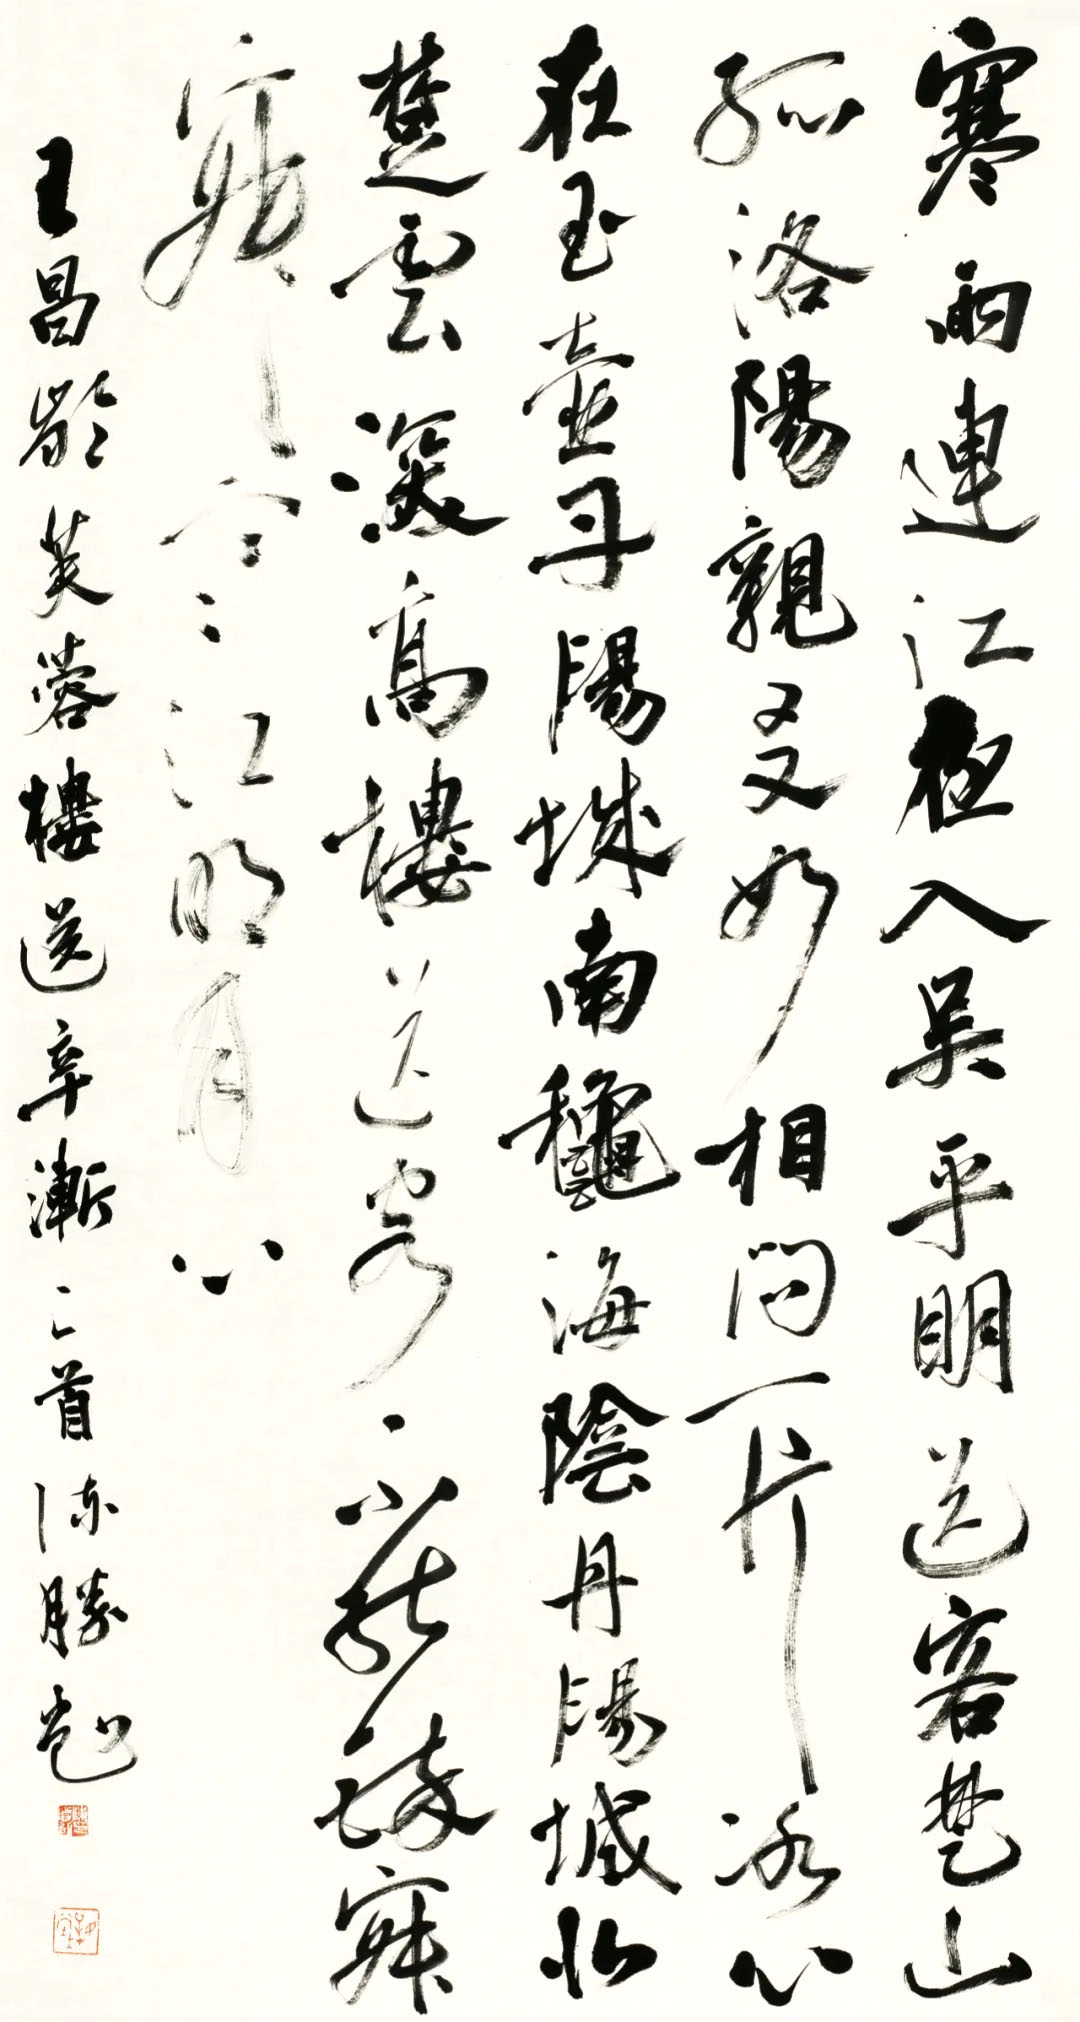 寒雨連江夜入吳平明送客楚山
孤洛陽親友如相問一片冰心
在玉壺丹陽城南穐海陰丹陽城北
楚雲深高樓送客不能醉寂
寂寒江明月心
王昌齡芙蓉樓送辛漸二首陳勝